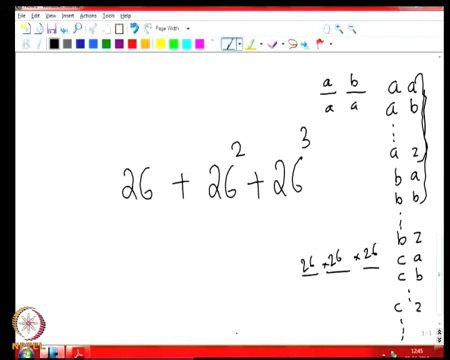 File Edit View Insert Actions Tools Help
Page Width
a b
a a
26 + 26² + 26³
26 × 26 × 26
a a
a b
⋮
a z
b a
b b
⋮
b z
c a
c b
⋮
c z
⋮
3/3
12:45